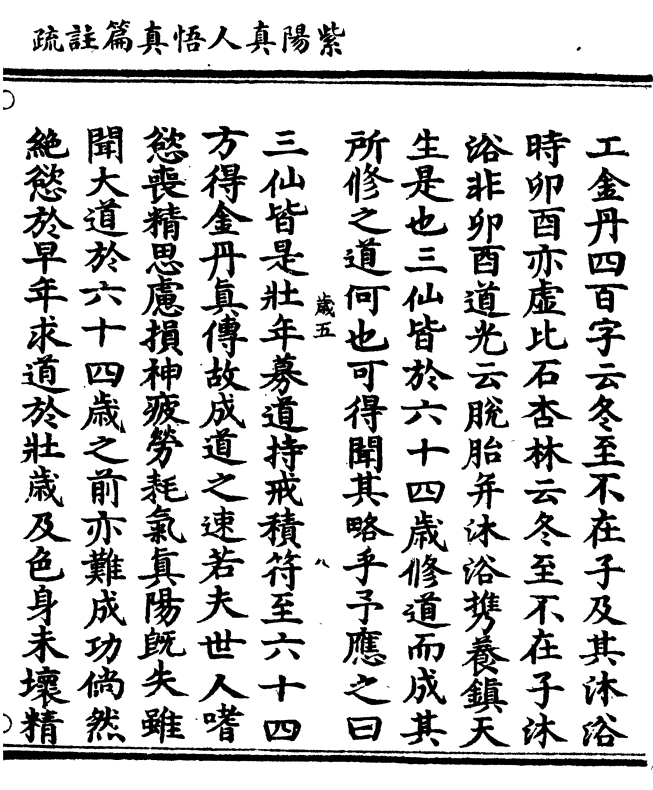 紫陽真人悟真篇註疏
工金丹四百字云冬至不在子及其沐浴
時卯酉亦虛比石杏林云冬至不在子沐
浴非卯酉道光云脫胎并沐浴携養鎮天
生是也三仙皆於六十四歲修道而成其
所修之道何也可得聞其略乎予應之曰
歲五
八
三仙皆是壯年募道持戒積符至六十四
方得金丹真傳故成道之速若夫世人嗜
慾喪精思慮損神疲勞耗氣真陽既失雖
聞大道於六十四歲之前亦難成功倘然
絕慾於早年求道於壯歲及色身未壞精